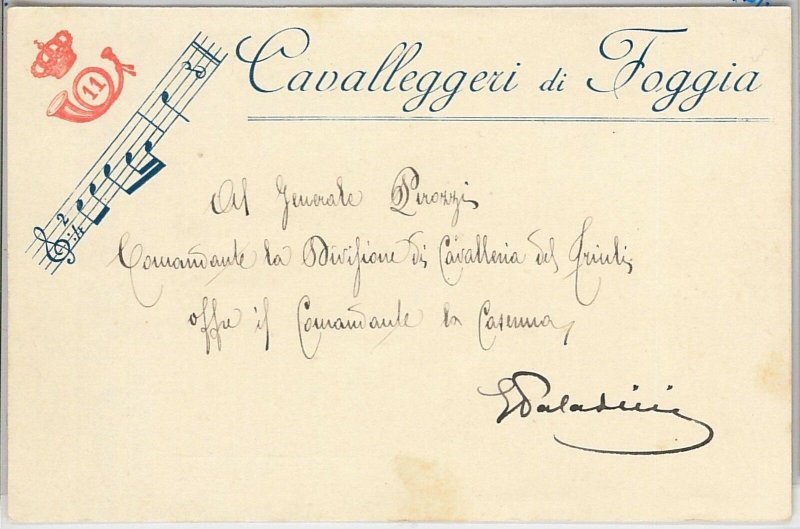 11
Cavalleggeri di Foggia
Al Generale Pirozzi
Comandante la Divisione di Cavalleria del Friuli
offre il Comandante la Caserma
Paladini